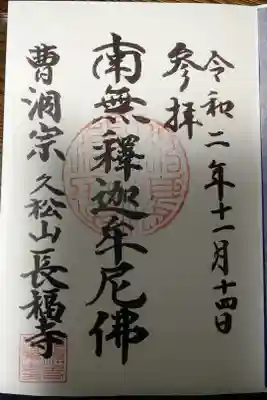 参拝
令和二年十一月十四日
南無釋迦牟尼佛
曹洞宗 久松山 長福寺